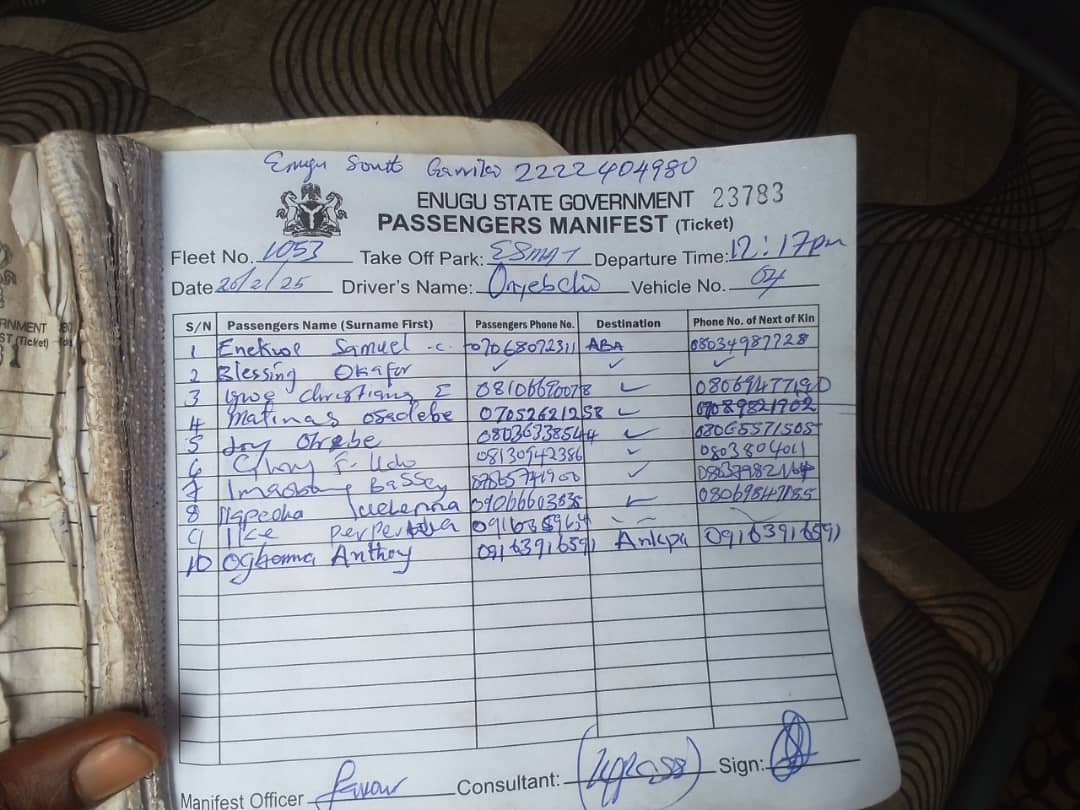 Enugu South Gariki 2222404980
ENUGU STATE GOVERNMENT 23783
PASSENGERS MANIFEST (Ticket)
Fleet No. 1053 Take Off Park: ESMAT Departure Time: 12:17pm
Date 26/2/25 Driver's Name: Vehicle No. 04
S/N Passengers Name (Surname First) Passengers Phone No. Destination Phone No. of Next of Kin
1 Samuel .c. 07068072311 ABA 08034987728
2 Blessing Okafor ✓ ✓ ✓
3 Christiana E 08106690078 ✓
4 Matinas Osadebe 07052621258 ✓ 07089821902
5 Joy 08036338544 ✓ 08065571505
6 F. Udo 08130942386 ✓ 0803804011
7 Bassey ✓
8 09066603838 ✓ 08069847185
9 Ike
10 Ogbonna Anthoy 09163916591 Ankpa 09163916591
Manifest Officer Favour Consultant: Sign:
RNMENT
ST (Ticket)